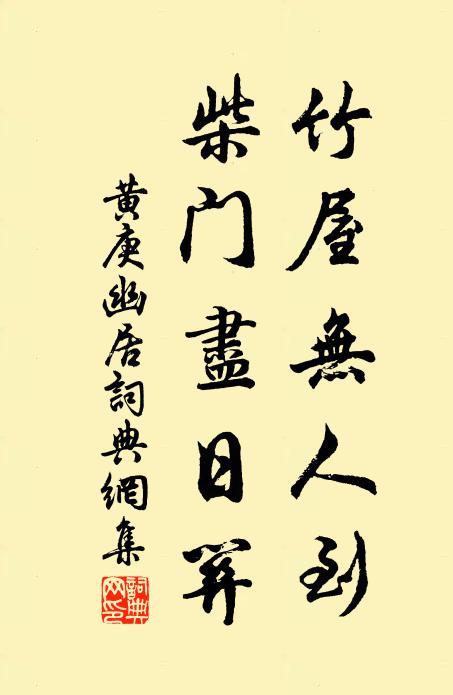 竹屋無人到
柴門盡日開
黃庚幽居詞典網集
詞典網印